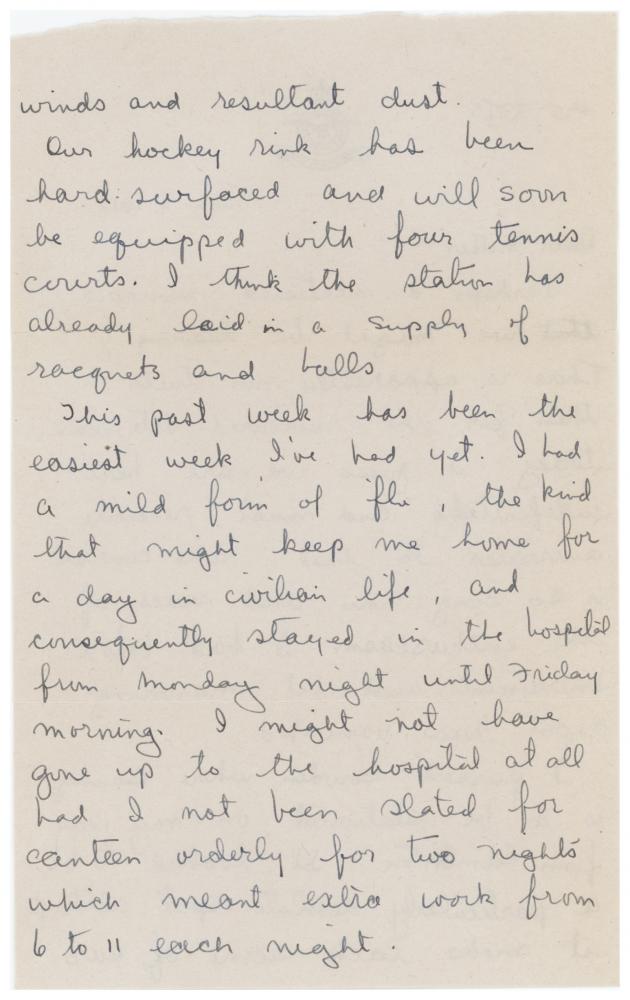 winds and resultant dust.
Our hockey rink has been
hard surfaced and will soon
be equipped with four tennis
courts. I think the station has
already laid in a supply of
racquets and balls
This past week has been the
easiest week I've had yet. I had
a mild form of flu, the kind
that might keep me home for
a day in civilian life, and
consequently stayed in the hospital
from Monday night until Friday
morning. I might not have
gone up to the hospital at all
had I not been slated for
canteen orderly for two nights
which meant extra work from
6 to 11 each night.